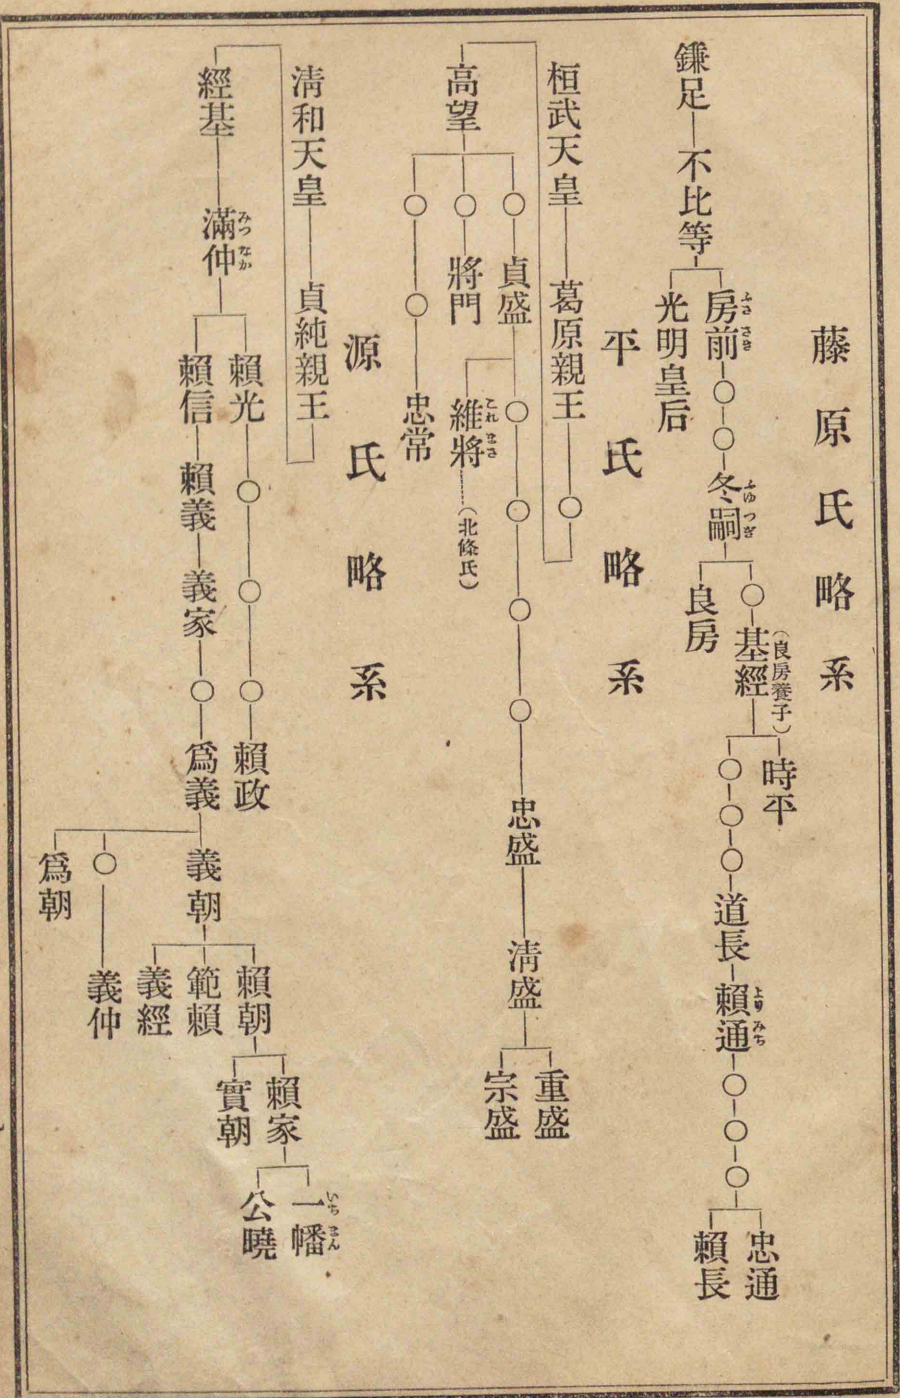 藤原氏略系
鎌足 不比等
房前
ふささき
○ ○
冬嗣
ふゆつぎ
○
基經
(良房養子)
時平
○ ○ ○ 道長 賴通
よりみち
○ ○ ○
忠通
賴長
良房
光明皇后
平氏略系
桓武天皇 葛原親王 ○
高望
○ 貞盛
○ ○ ○ ○ 忠盛 淸盛
重盛
宗盛
維將
これまさ
(北條氏)
○ 將門
○ ○ 忠常
源氏略系
淸和天皇 貞純親王
經基 滿仲
みつなか
賴光 ○ ○ ○ 賴政
賴信 賴義 義家 ○ 爲義
義朝
賴朝
賴家
一幡
いちまん
公曉
實朝
範賴
義經
○ 義仲
爲朝